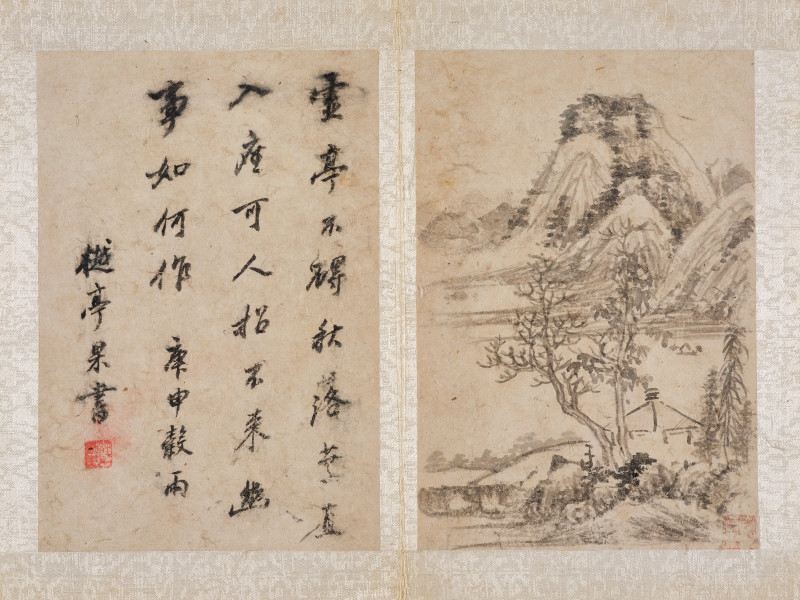 虛亭不碍秋落葉直
入座可人招不來幽
事如何作 庚申穀雨
樾亭杲書